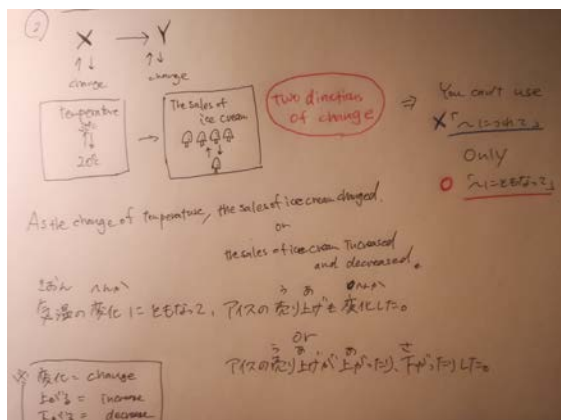 ②
X → Y
↑↓ ↑↓
change change
temperature
↑↓
20℃
→
The sales of
ice cream
↑↓
Two direction
of change
⇒ You can't use
×「〜につれて」
Only
○「〜にともなって」
As the change of temperature, the sales of ice cream changed.
or
the sales of ice cream increased
and decreased.
きおん へんか う あ へんか
気温の変化にともなって、アイスの売り上げも変化した。
or
う あ あ さ
アイスの売り上げが上がったり、下がったりした。
※ 変化 = change
上がる = increase
下がる = decrease